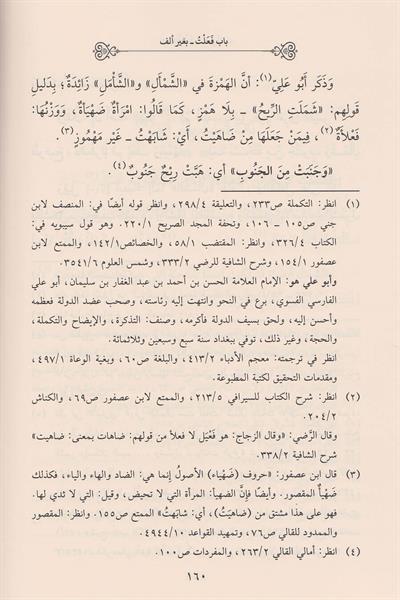 باب فَعَلْتُ ـ بغير ألف
وَذَكَر أَبُو عَلِيّ(١): أنَّ الهَمْزَةَ في «الشَّمْأَلِ» و«الشَّأْمَلِ» زَائِدَةٌ؛ بِدَلیلِ
قَولِهِم: «شَمَلَتِ الرِّيحُ» ـ بِلَا هَمْزٍ، كَمَا قَالُوا: امْرَأَةٌ ضَهْيَأَةٌ، وَوَزْنُهَا:
فَعْلأَةٌ(٢)، فِيمَنْ جَعَلَهَا مِنْ ضَاهَيْتُ، أَيْ: شَابَهْتُ ـ غَيْر مَهْمُوزٍ(٣).
«وَجَنَبَتْ مِنَ الجَنُوبِ» أي: هَبَّتْ رِيْحٌ جَنُوبٌ(٤).
(١) انظر: التكملة ص٢٣٣، والتعليقة ٢٩٨/٤، وانظر قوله أيضًا في: المنصف لابن
جني ص١٠٥ ـ ١٠٦، وتحفة المجد الصريح ٢٢٠/١. وهو قول سيبويه في:
الكتاب ٣٢٦/٤، وانظر: المقتضب ٥٨/١، والخصائص١٤٢/١، والممتع لابن
عصفور ١٥٤/١، وشرح الشافية للرضي ٣٣٣/٢، وشمس العلوم ٣٥٤١/٦.
وأبو علي هو: الإمام العلامة الحسن بن أحمد بن عبد الغفار بن سليمان، أبو علي
الفارسي الفسوي، برع في النحو وانتهت إليه رئاسته، وصحب عضد الدولة فعظمه
وأحسن إليه، ولحق بسيف الدولة فأكرمه، وصنف: التذكرة، والإيضاح والتكملة،
والحجة، وغير ذلك، توفي ببغداد سنة سبع وسبعين وثلاثمائة.
انظر في ترجمته: معجم الأدباء ٤١٣/٢، والبلغة ص٦٠، وبغية الوعاة ٤٩٧/١،
ومقدمات التحقيق لكتبة المطبوعة.
(٢) انظر: شرح الكتاب للسيرافي ٢١٣/٥، والممتع لابن عصفور ص٦٩، والكناش
٢٠٤/٢.
وقال الرَّضي: «وقال الزجاج: هو فَعْيَل لا فعلأ من قولهم: ضاهات بمعنى: ضاهيت»
شرح الشافية ٣٣٨/٢.
(٣) قال ابن عصفور: «حروف (ضَهْياء) الأصولُ إنما هي: الضاد والهاء والياء، فكذلك
ضَهْيأ المقصور. وأيضًا فإنَّ الضهيأ: المرأة التي لا تحيض، وقيل: التي لا ثدي لها.
فهو على هذا مشتق من (ضاهَيْتُ)، أي: شابَهتُ» الممتع ص١٥٥. وانظر: المقصور
والممدود للقالي ص٧٦، وتمهيد القواعد ٤٩٤٤/١٠.
(٤) انظر: أمالي القالي ٢٦٣/٢، والمفردات ص١٠٠.
١٦٠